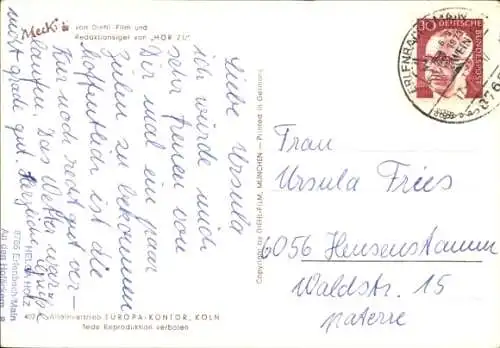 Mecki
von Diehl-Film und
Redaktionsigel von „HÖR ZU“
Liebe Ursula
ich würde mich
sehr freuen von
Dir mal ein paar
Zeilen zu bekommen
Hoffentlich ist die
Kur noch recht gut ver-
laufen. Das Wetter war
nicht grade gut. Herzliche
Grüße
HELGA HOLZ
8765 Erlenbach/Main
Alleinvertrieb EUROPA-KONTOR, KÖLN
Jede Reproduktion verboten
Copyright by DIEHL-FILM, MÜNCHEN – Printed in Germany
30
DEUTSCHE BUNDESPOST
Frau
Ursula Fries
6056 Heusenstamm
Waldstr. 15
paterre